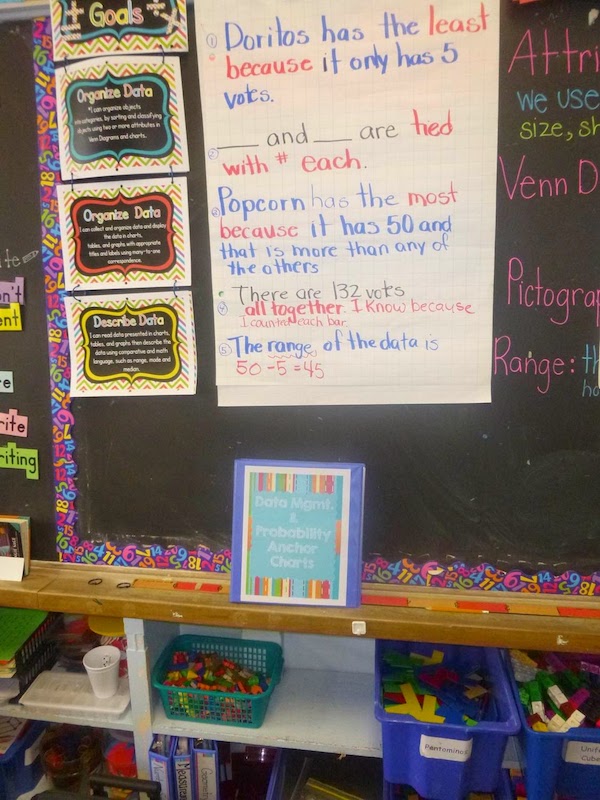 Goals
Organize Data
*I can organize objects
into categories, by sorting and classifying
objects using two or more attributes in
Venn Diagrams and charts.
Organize Data
I can collect and organize data and display
the data in charts,
tables, and graphs with appropriate
titles and labels using many-to-one
correspondence.
Describe Data
I can read data presented in charts,
tables, and graphs then describe the
data using comparative and math
language, such as range, mode and
median.
① Doritos has the least
because it only has 5
votes.
___ and ___ are tied
② with # each.
③ Popcorn has the most
because it has 50 and
that is more than any of
the others
There are 132 votes
④ all together. I know because
I counted each bar.
⑤ The range of the data is
50 - 5 = 45
Attri
we use
size, sh
Venn D
Pictograp
Range: th
ho
n't
ent
re
rite
riting
Data Mgmt.
&
Probability
Anchor
Charts
Pentominos
Unifi
Cube